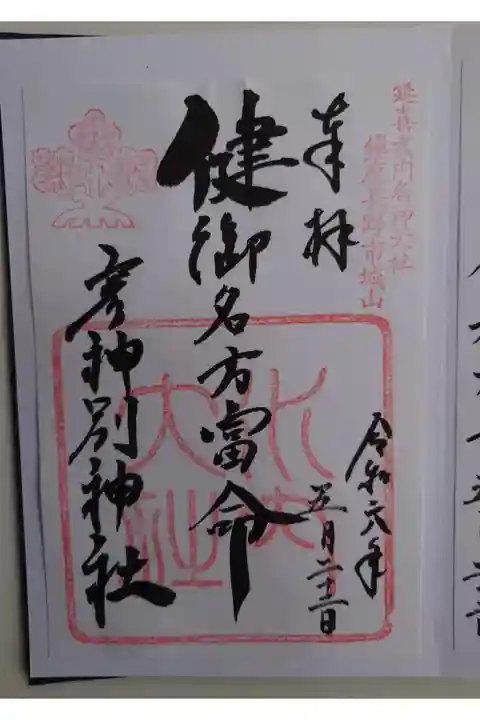 延喜式内名神大社
信濃長野市城山
奉拝
令和六年
五月二十二日
健御名方富命
彦神別神社
水内
大社